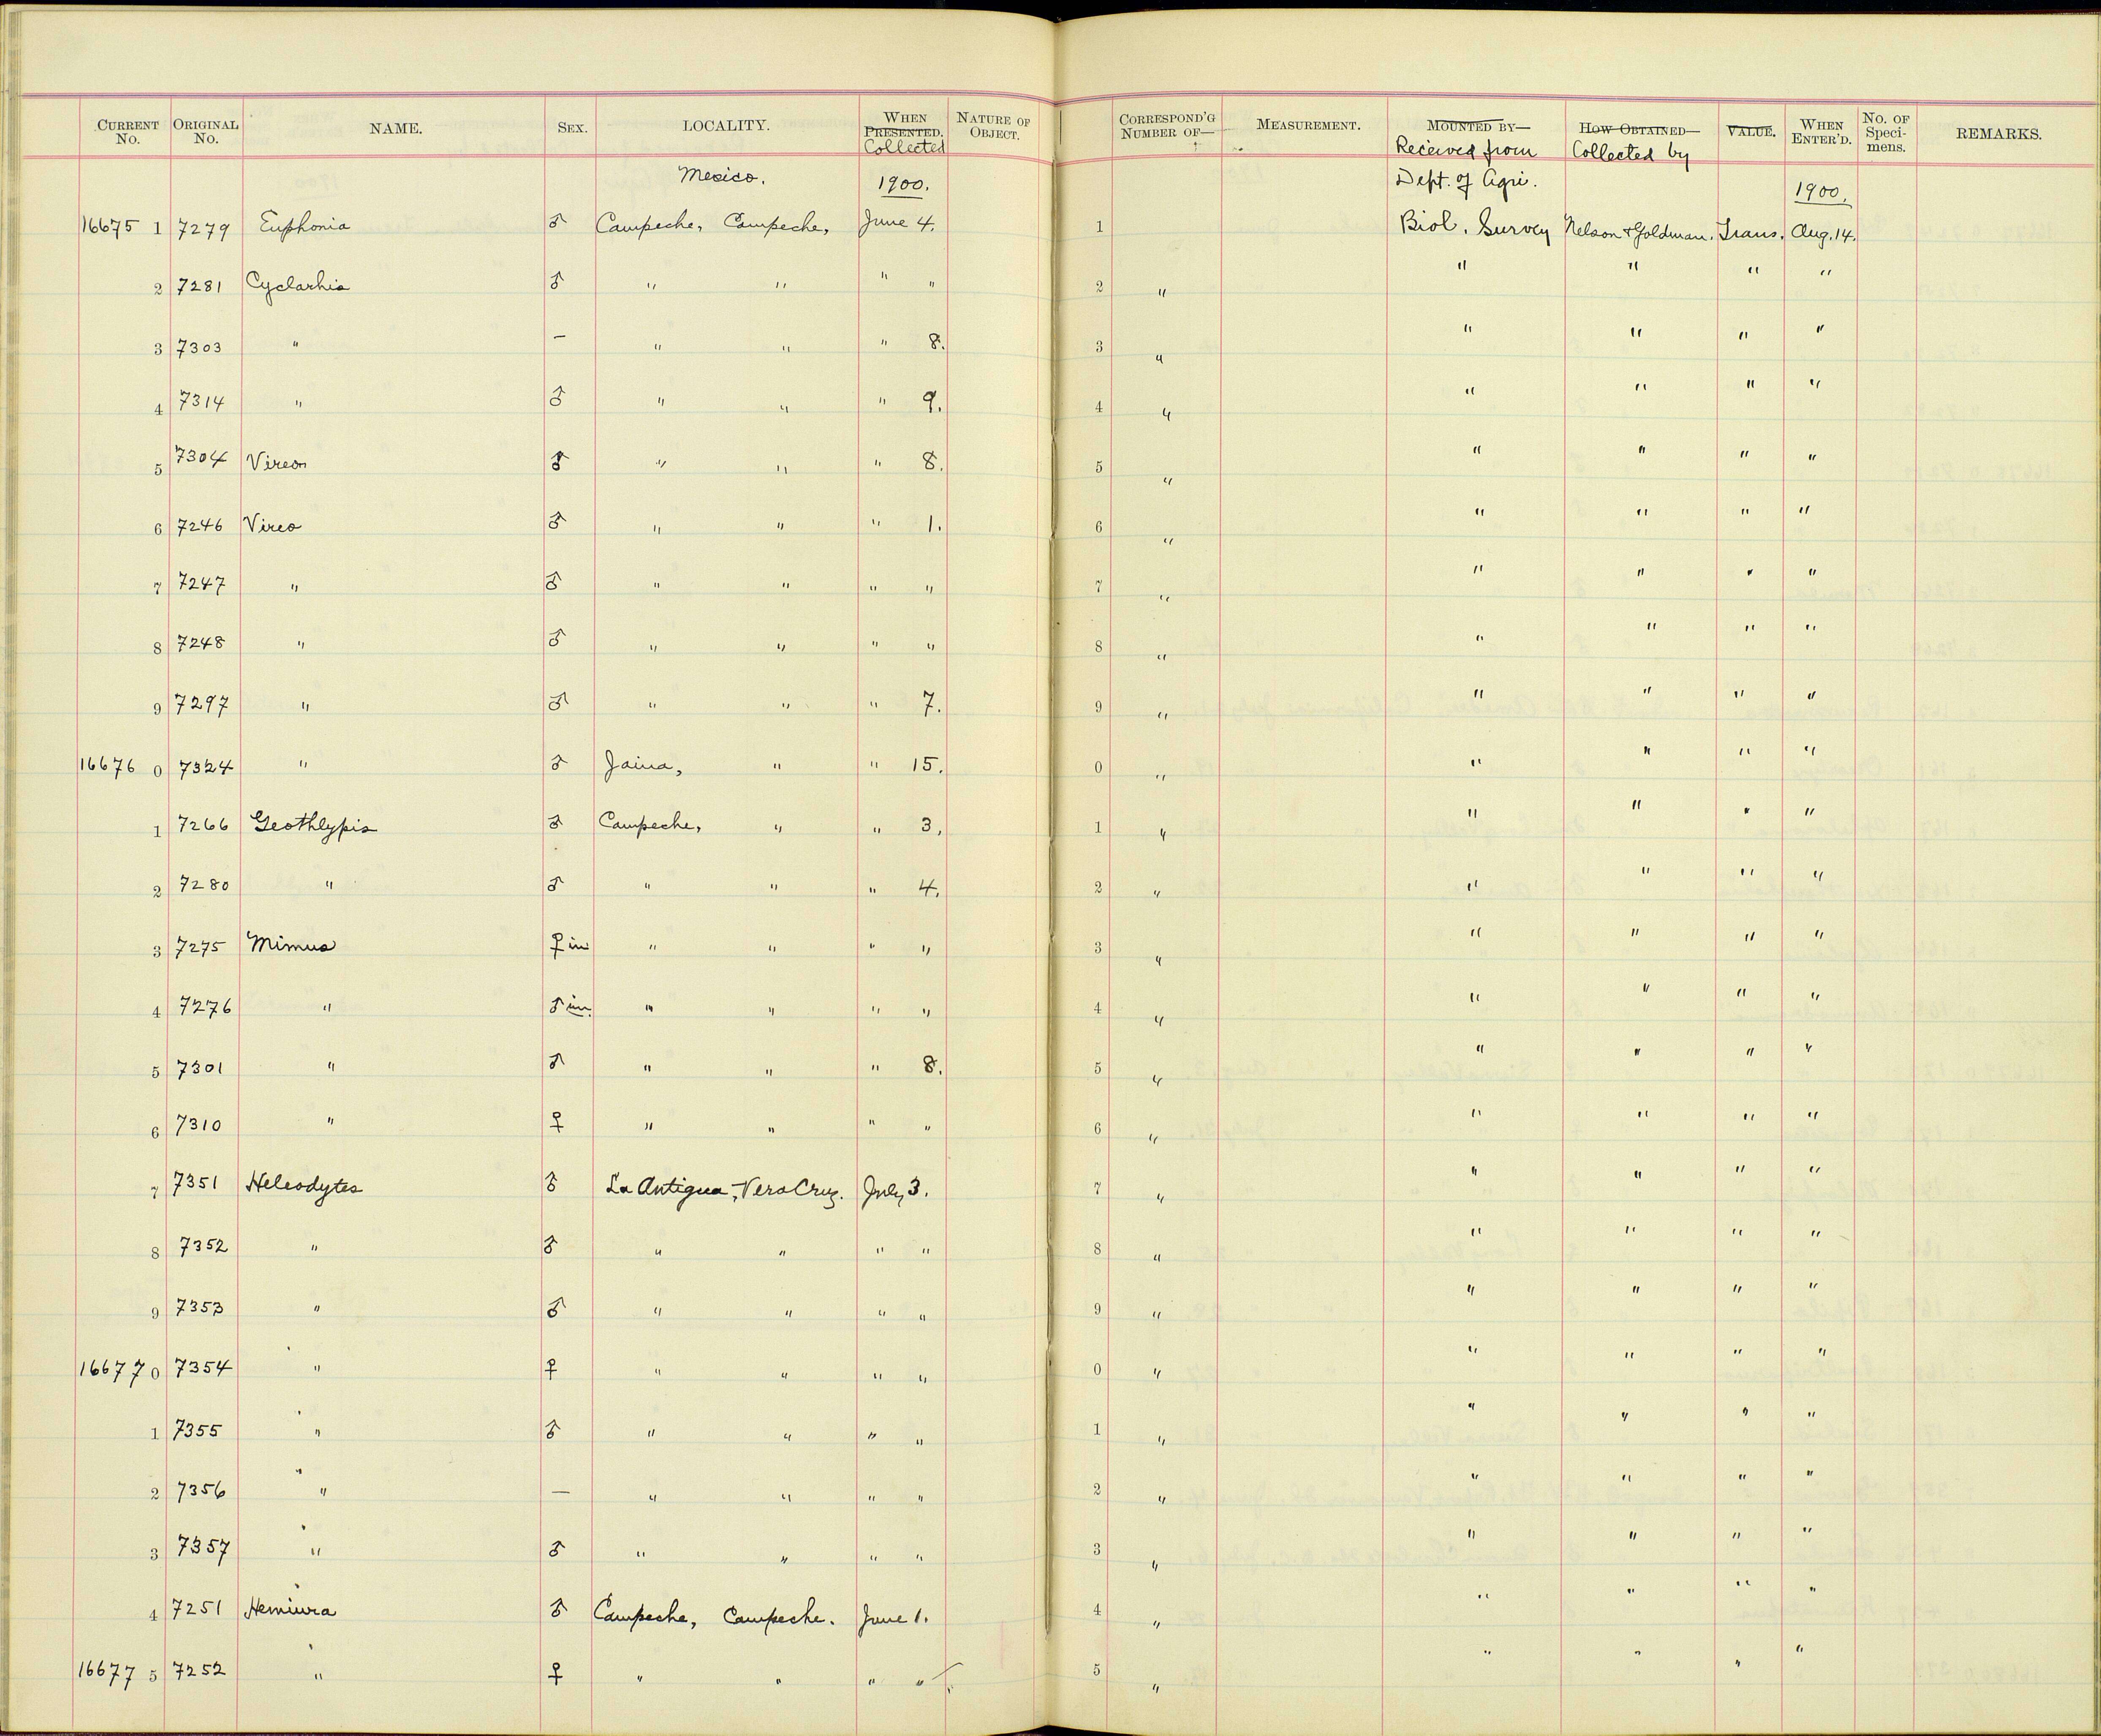 CURRENT No. ORIGINAL No. NAME. SEX. LOCALITY. WHEN PRESENTED. Collected NATURE OF OBJECT. CORRESPOND'G NUMBER OF— MEASUREMENT. MOUNTED BY— Received from HOW OBTAINED— Collected by VALUE. WHEN ENTER'D. No. OF Speci- mens. REMARKS.
Mexico. 1900. Dept. of Agri. 1900.
16675 1 7279 Euphonia ♂ Campeche, Campeche, June 4. 1 Biol. Survey Nelson & Goldman. Trans. Aug. 14.
2 7281 Cyclarhis ♂ " " " " 2 " " " " "
3 7303 " — " " " 8. 3 " " " " "
4 7314 " ♂ " " " 9. 4 " " " " "
5 7304 Vireon ♂ " " " 8. 5 " " " " "
6 7246 Vireo ♂ " " " 1. 6 " " " " "
7 7247 " ♂ " " " " 7 " " " " "
8 7248 " ♂ " " " " 8 " " " " "
9 7297 " ♂ " " " 7. 9 " " " " "
16676 0 7324 " ♂ Jaina, " " 15. 0 " " " " "
1 7266 Geothlypis ♂ Campeche, " " 3. 1 " " " " "
2 7280 " ♂ " " " 4. 2 " " " " "
3 7275 Mimus ♀ im " " " " 3 " " " " "
4 7276 " ♂ im. " " " " 4 " " " " "
5 7301 " ♂ " " " 8. 5 " " " " "
6 7310 " ♀ " " " " 6 " " " " "
7 7351 Heleodytes ♂ La Antigua, Vera Cruz. July 3. 7 " " " " "
8 7352 " ♂ " " " " 8 " " " " "
9 7353 " ♂ " " " " 9 " " " " "
16677 0 7354 " ♀ " " " " 0 " " " " "
1 7355 " ♂ " " " " 1 " " " " "
2 7356 " — " " " " 2 " " " " "
3 7357 " ♂ " " " " 3 " " " " "
4 7251 Hemiura ♂ Campeche, Campeche. June 1. 4 " " " " "
16677 5 7252 " ♀ " " " " 5 " " " " "